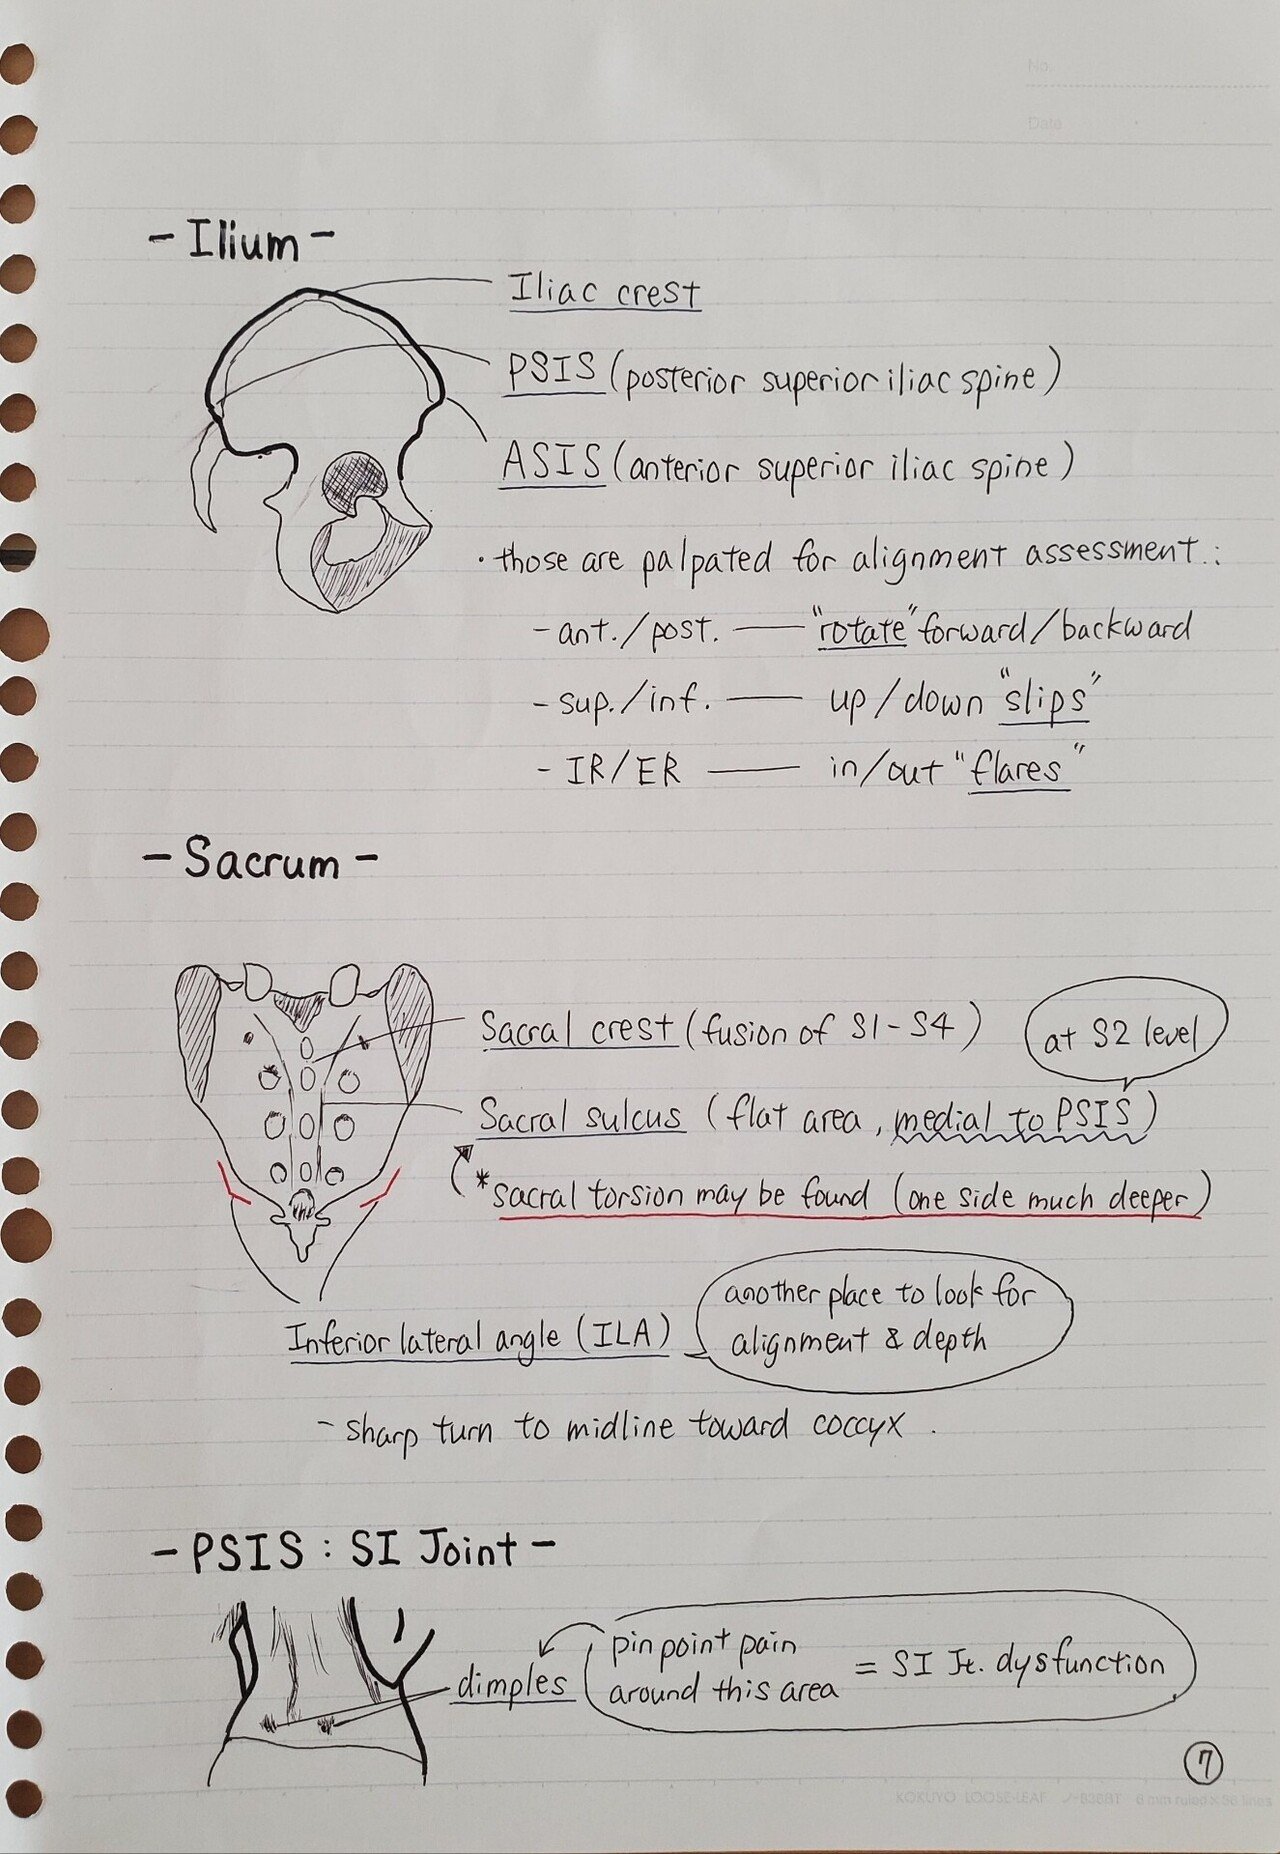 No.
Date
- Ilium -
Iliac crest
PSIS (posterior superior iliac spine)
ASIS (anterior superior iliac spine)
· those are palpated for alignment assessment.:
- ant./post. — "rotate" forward/backward
- sup./inf. — up/down "slips"
- IR/ER — in/out "flares"
- Sacrum -
Sacral crest (fusion of S1-S4)
at S2 level
Sacral sulcus (flat area, medial to PSIS)
*sacral torsion may be found (one side much deeper)
another place to look for
alignment & depth
Inferior lateral angle (ILA)
- sharp turn to midline toward coccyx.
- PSIS : SI Joint -
dimples
pin point pain
around this area
= SI Jt. dysfunction
7
KOKUYO LOOSE-LEAF 6 mm ruled × 36 lines